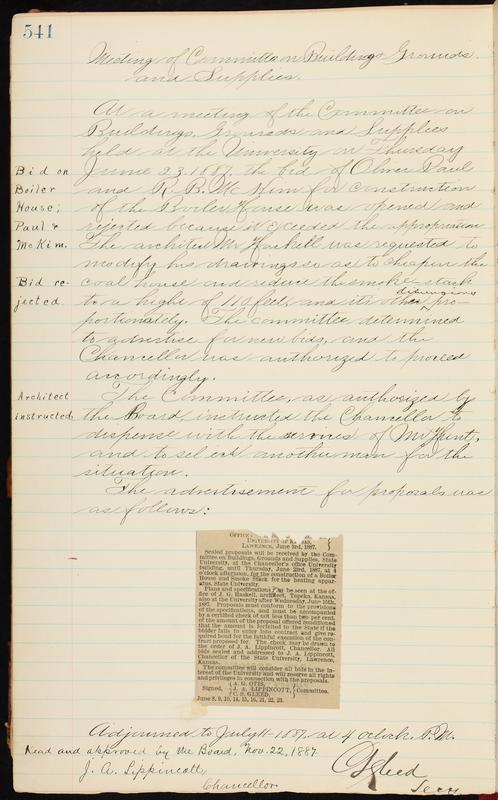 541
Meeting of Committee on Buildings Grounds
and Supplies.
At a meeting of the Committee on
Buildings, Grounds and Supplies
held at the University on Thursday
June 23. 1887, the bid of Oliver Paul
and R. B. McKim for construction
of the Boiler House was opened and
rejected because it exceeded the appropriation
The architect Mr Haskell was requested to
modify his drawings so as to cheapen the
coal house and reduce the smoke-stack
to a hight of 110 feet, and its other dimensions pro-
portionately. The committee determined
to advertise for new bids, and the
Chancellor was authorized to proceed
accordingly.
Bid on
Boiler
House;
Paul &
McKim.
Bid re-
jected
The Committee, as authorized by
the Board, instructed the Chancellor to
dispense with the services of Mr Hunt,
and to select another man for the
situation.
Architect
instructed.
The advertisement for proposals was
as follows:
OFFICE
UNIVERSITY OF KANSAS,
LAWRENCE, June 3rd, 1887.
Sealed proposals will be received by the Com-
mittee on Buildings, Grounds and Supplies, State
University, at the Chancellor's office University
building, until Thursday, June 23rd, 1887, at 4
o'clock afternoon, for the construction of a Boiler
House and Smoke Stack for the heating appar-
atus, State University.
Plans and specifications may be seen at the of-
fice of J. G. Haskell, architect, Topeka, Kansas,
also at the University after Wednesday, June 15th,
1887. Proposals must conform to the provisions
of the specifications, and must be accompanied
by a certified check of not less than two per cent.
of the amount of the proposal offered conditioned
that the amount is forfeited to the State if the
bidder fails to enter into contract and give re-
quired bond for the faithful execution of the con-
tract proposed for. The check may be drawn to
the order of J. A. Lippincott, Chancellor. All
bids sealed and addressed to J. A. Lippincott,
Chancellor of the State University, Lawrence,
Kansas.
The committee will consider all bids in the in-
terest of the University and will reserve all rights
and privileges in connection with the proposals.
A. G. OTIS,
Signed, J. A. LIPPINCOTT, Committee.
C. S. GLEED,
June 8, 9, 10, 14, 15, 16, 21, 22, 23.
Adjourned to July 11-1887 at 4 oclock P.M.
Read and approved by the Board, Nov. 22, 1887.
J. A. Lippincott
Chancellor.
CSGleed
Secy